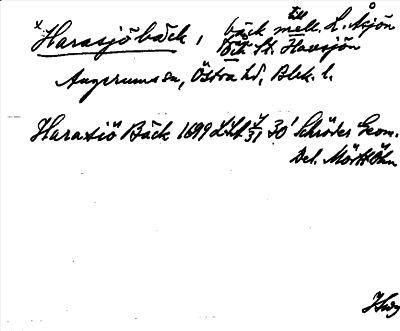 x Harasjöbäck, bäck mell. L. Åsjön
till
och St. Havsjön
Augerums sn, Östra hd, Blek. l.
Harasiö Bäck 1699 LSA 30' Schröder Geom.
Del. Mörtsöhn